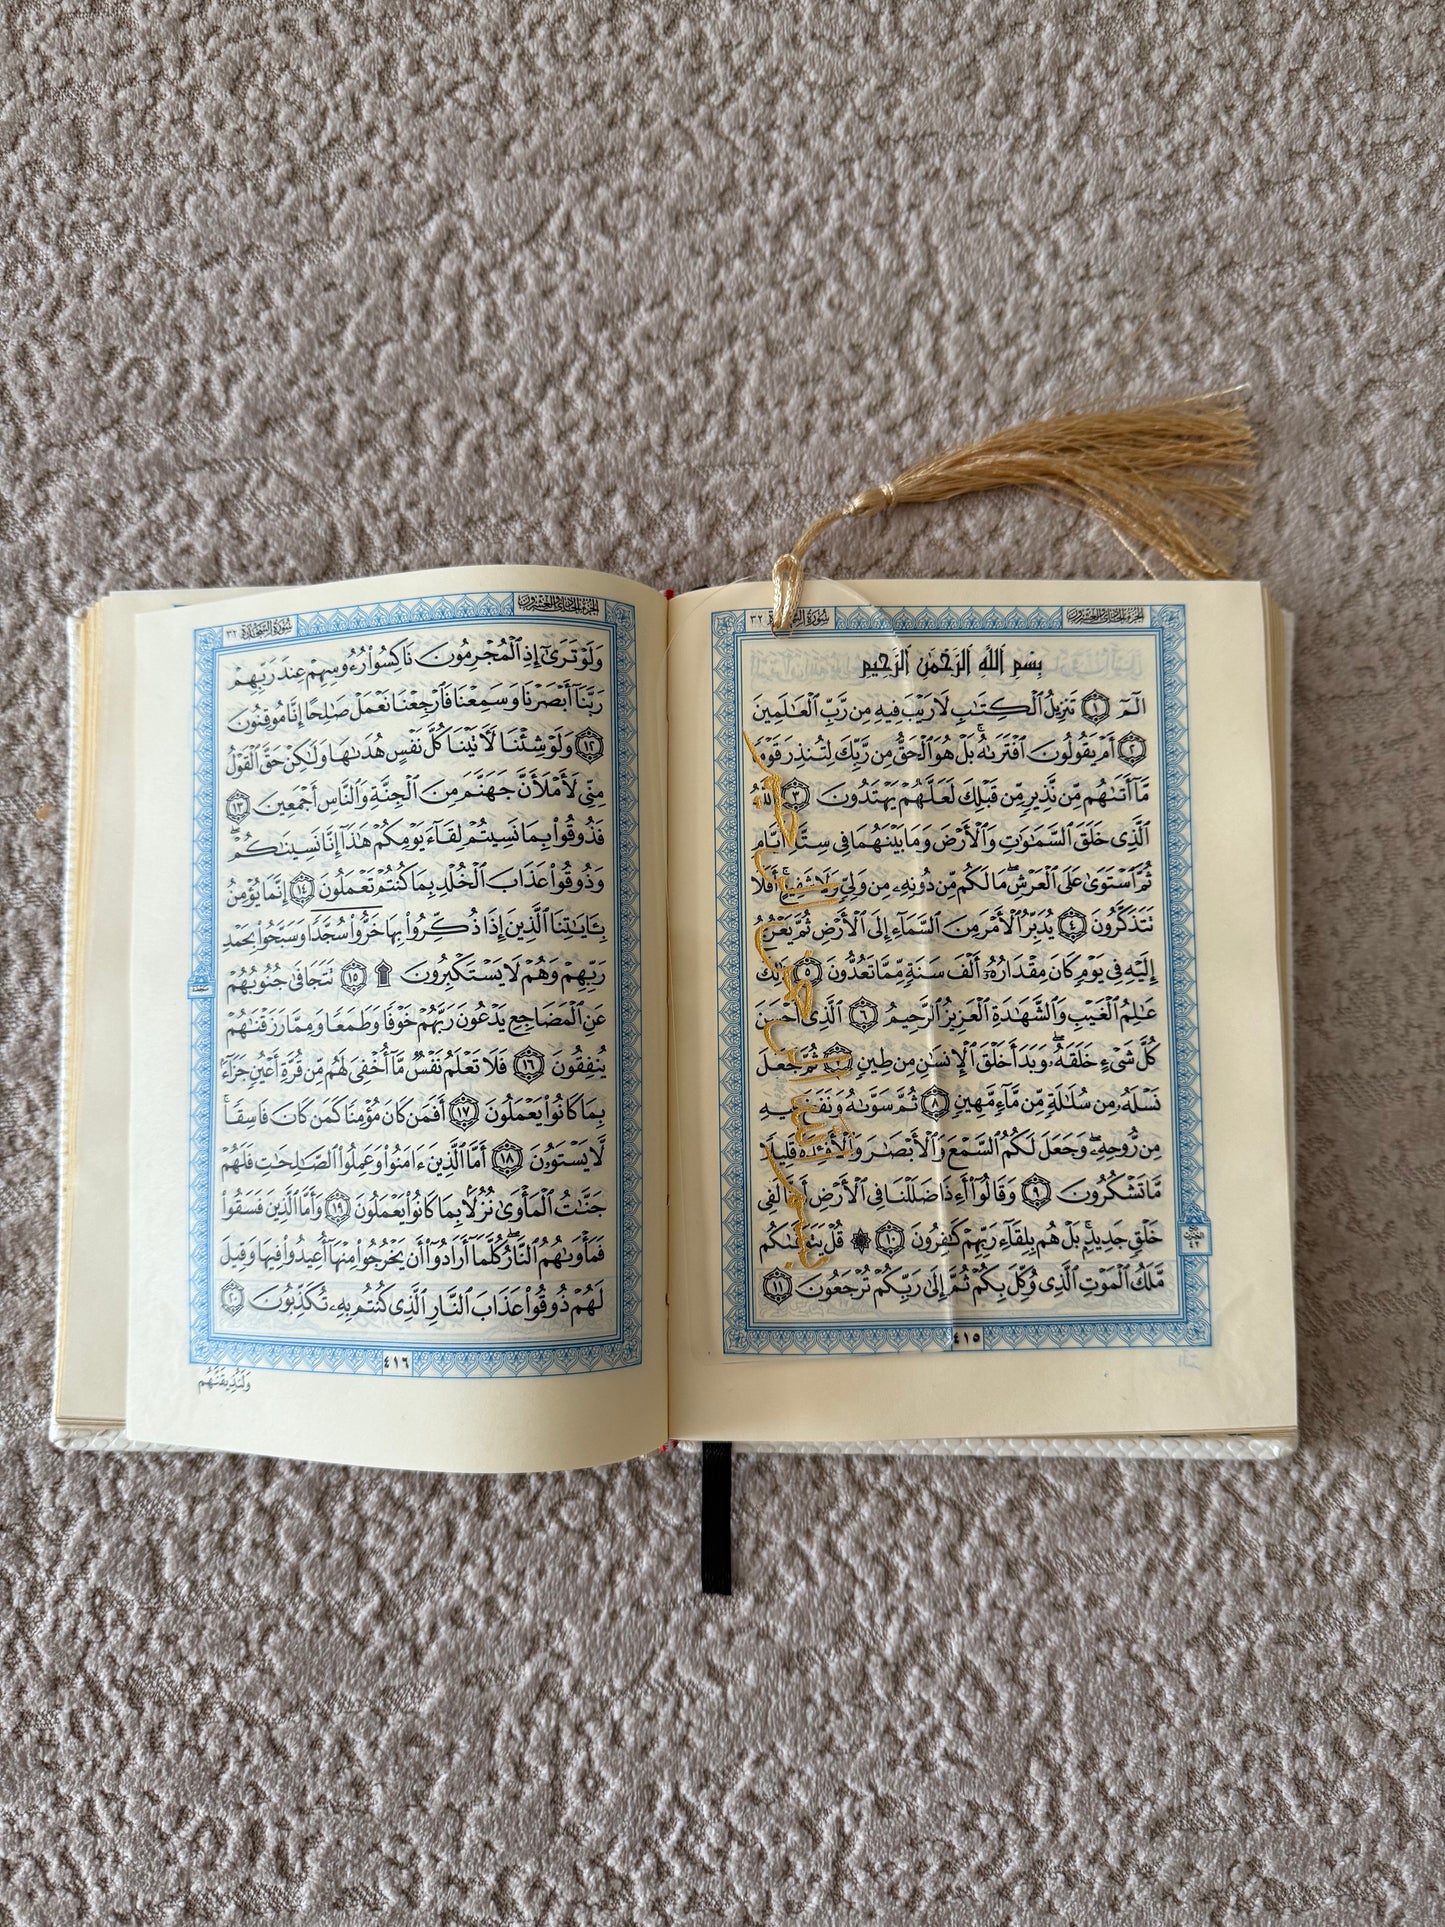 سُورَةُ السَّجْدَةِ ٣٢
الجزء الحادي والعشرون
بِسْمِ اللَّهِ الرَّحْمَٰنِ الرَّحِيمِ
الٓمٓ ١ تَنزِيلُ ٱلْكِتَٰبِ لَا رَيْبَ فِيهِ مِن رَّبِّ ٱلْعَٰلَمِينَ
٢ أَمْ يَقُولُونَ ٱفْتَرَىٰهُ ۚ بَلْ هُوَ ٱلْحَقُّ مِن رَّبِّكَ لِتُنذِرَ قَوْمًا
مَّآ أَتَىٰهُم مِّن نَّذِيرٍ مِّن قَبْلِكَ لَعَلَّهُمْ يَهْتَدُونَ ٣ ٱللَّهُ
ٱلَّذِى خَلَقَ ٱلسَّمَٰوَٰتِ وَٱلْأَرْضَ وَمَا بَيْنَهُمَا فِى سِتَّةِ أَيَّامٍ
ثُمَّ ٱسْتَوَىٰ عَلَى ٱلْعَرْشِ ۖ مَا لَكُم مِّن دُونِهِۦ مِن وَلِىٍّ وَلَا شَفِيعٍ ۚ أَفَلَا
تَتَذَكَّرُونَ ٤ يُدَبِّرُ ٱلْأَمْرَ مِنَ ٱلسَّمَآءِ إِلَى ٱلْأَرْضِ ثُمَّ يَعْرُجُ
إِلَيْهِ فِى يَوْمٍ كَانَ مِقْدَارُهُۥٓ أَلْفَ سَنَةٍ مِّمَّا تَعُدُّونَ ٥ ذَٰلِكَ
عَٰلِمُ ٱلْغَيْبِ وَٱلشَّهَٰدَةِ ٱلْعَزِيزُ ٱلرَّحِيمُ ٦ ٱلَّذِىٓ أَحْسَنَ
كُلَّ شَىْءٍ خَلَقَهُۥ ۖ وَبَدَأَ خَلْقَ ٱلْإِنسَٰنِ مِن طِينٍ ٧ ثُمَّ جَعَلَ
نَسْلَهُۥ مِن سُلَٰلَةٍ مِّن مَّآءٍ مَّهِينٍ ٨ ثُمَّ سَوَّىٰهُ وَنَفَخَ فِيهِ
مِن رُّوحِهِۦ ۖ وَجَعَلَ لَكُمُ ٱلسَّمْعَ وَٱلْأَبْصَٰرَ وَٱلْأَفْـِٔدَةَ ۚ قَلِيلًا
مَّا تَشْكُرُونَ ٩ وَقَالُوٓا۟ أَءِذَا ضَلَلْنَا فِى ٱلْأَرْضِ أَءِنَّا لَفِى
خَلْقٍ جَدِيدٍۭ ۚ بَلْ هُم بِلِقَآءِ رَبِّهِمْ كَٰفِرُونَ ١٠ ۞ قُلْ يَتَوَفَّىٰكُم
مَّلَكُ ٱلْمَوْتِ ٱلَّذِى وُكِّلَ بِكُمْ ثُمَّ إِلَىٰ رَبِّكُمْ تُرْجَعُونَ ١١
٤١٥
بسم الله الرحمن الرحيم
الجزء الحادي والعشرون
سُورَةُ السَّجْدَةِ ٣٢
وَلَوْ تَرَىٰٓ إِذِ ٱلْمُجْرِمُونَ نَاكِسُوا۟ رُءُوسِهِمْ عِندَ رَبِّهِمْ
رَبَّنَآ أَبْصَرْنَا وَسَمِعْنَا فَٱرْجِعْنَا نَعْمَلْ صَٰلِحًا إِنَّا مُوقِنُونَ
١٢ وَلَوْ شِئْنَا لَـَٔاتَيْنَا كُلَّ نَفْسٍ هُدَىٰهَا وَلَٰكِنْ حَقَّ ٱلْقَوْلُ
مِنِّى لَأَمْلَأَنَّ جَهَنَّمَ مِنَ ٱلْجِنَّةِ وَٱلنَّاسِ أَجْمَعِينَ ١٣
فَذُوقُوا۟ بِمَا نَسِيتُمْ لِقَآءَ يَوْمِكُمْ هَٰذَآ إِنَّا نَسِينَٰكُمْ ۖ
وَذُوقُوا۟ عَذَابَ ٱلْخُلْدِ بِمَا كُنتُمْ تَعْمَلُونَ ١٤ إِنَّمَا يُؤْمِنُ
بِـَٔايَٰتِنَا ٱلَّذِينَ إِذَا ذُكِّرُوا۟ بِهَا خَرُّوا۟ سُجَّدًا وَسَبَّحُوا۟ بِحَمْدِ
رَبِّهِمْ وَهُمْ لَا يَسْتَكْبِرُونَ ۩ ١٥ تَتَجَافَىٰ جُنُوبُهُمْ
عَنِ ٱلْمَضَاجِعِ يَدْعُونَ رَبَّهُمْ خَوْفًا وَطَمَعًا وَمِمَّا رَزَقْنَٰهُمْ
يُنفِقُونَ ١٦ فَلَا تَعْلَمُ نَفْسٌ مَّآ أُخْفِىَ لَهُم مِّن قُرَّةِ أَعْيُنٍ جَزَآءًۢ
بِمَا كَانُوا۟ يَعْمَلُونَ ١٧ أَفَمَن كَانَ مُؤْمِنًا كَمَن كَانَ فَاسِقًا ۚ
لَّا يَسْتَوُۥنَ ١٨ أَمَّا ٱلَّذِينَ ءَامَنُوا۟ وَعَمِلُوا۟ ٱلصَّٰلِحَٰتِ فَلَهُمْ
جَنَّٰتُ ٱلْمَأْوَىٰ نُزُلًۢا بِمَا كَانُوا۟ يَعْمَلُونَ ١٩ وَأَمَّا ٱلَّذِينَ فَسَقُوا۟
فَمَأْوَىٰهُمُ ٱلنَّارُ ۖ كُلَّمَآ أَرَادُوٓا۟ أَن يَخْرُجُوا۟ مِنْهَآ أُعِيدُوا۟ فِيهَا وَقِيلَ
لَهُمْ ذُوقُوا۟ عَذَابَ ٱلنَّارِ ٱلَّذِى كُنتُم بِهِۦ تُكَذِّبُونَ ٢٠
٤١٦
وَلَنُذِيقَنَّهُم